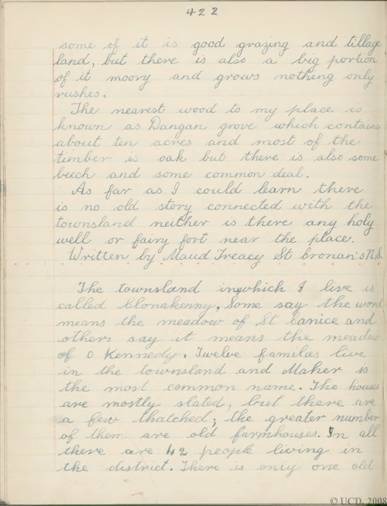 422
some of it is good grazing and tillage
land, but there is also a big portion
of it moory and grows nothing only
rushes.
The nearest wood to my place is
known as Dangan grove which contains
about ten acres and most of the
timber is oak but there is also some
beech and some common deal.
As far as I could learn there
is no old story connected with the
townsland neither is there any holy
well or fairy fort near the place.
Written by Maud Treacy St Cronan's N.S.
The townsland inwhich I live is
called Clonakenny, Some say the word
means the meadow of St Canice and
others say it means the meadow
of O Kennedy. Twelve familes live
in the townsland and Maher is
the most common name. The houses
are mostly slated, but there are
a few thatched; the greater number
of them are old farmhouses. In all
there are 42 people living in
the district. There is only one old
© UCD, 2008